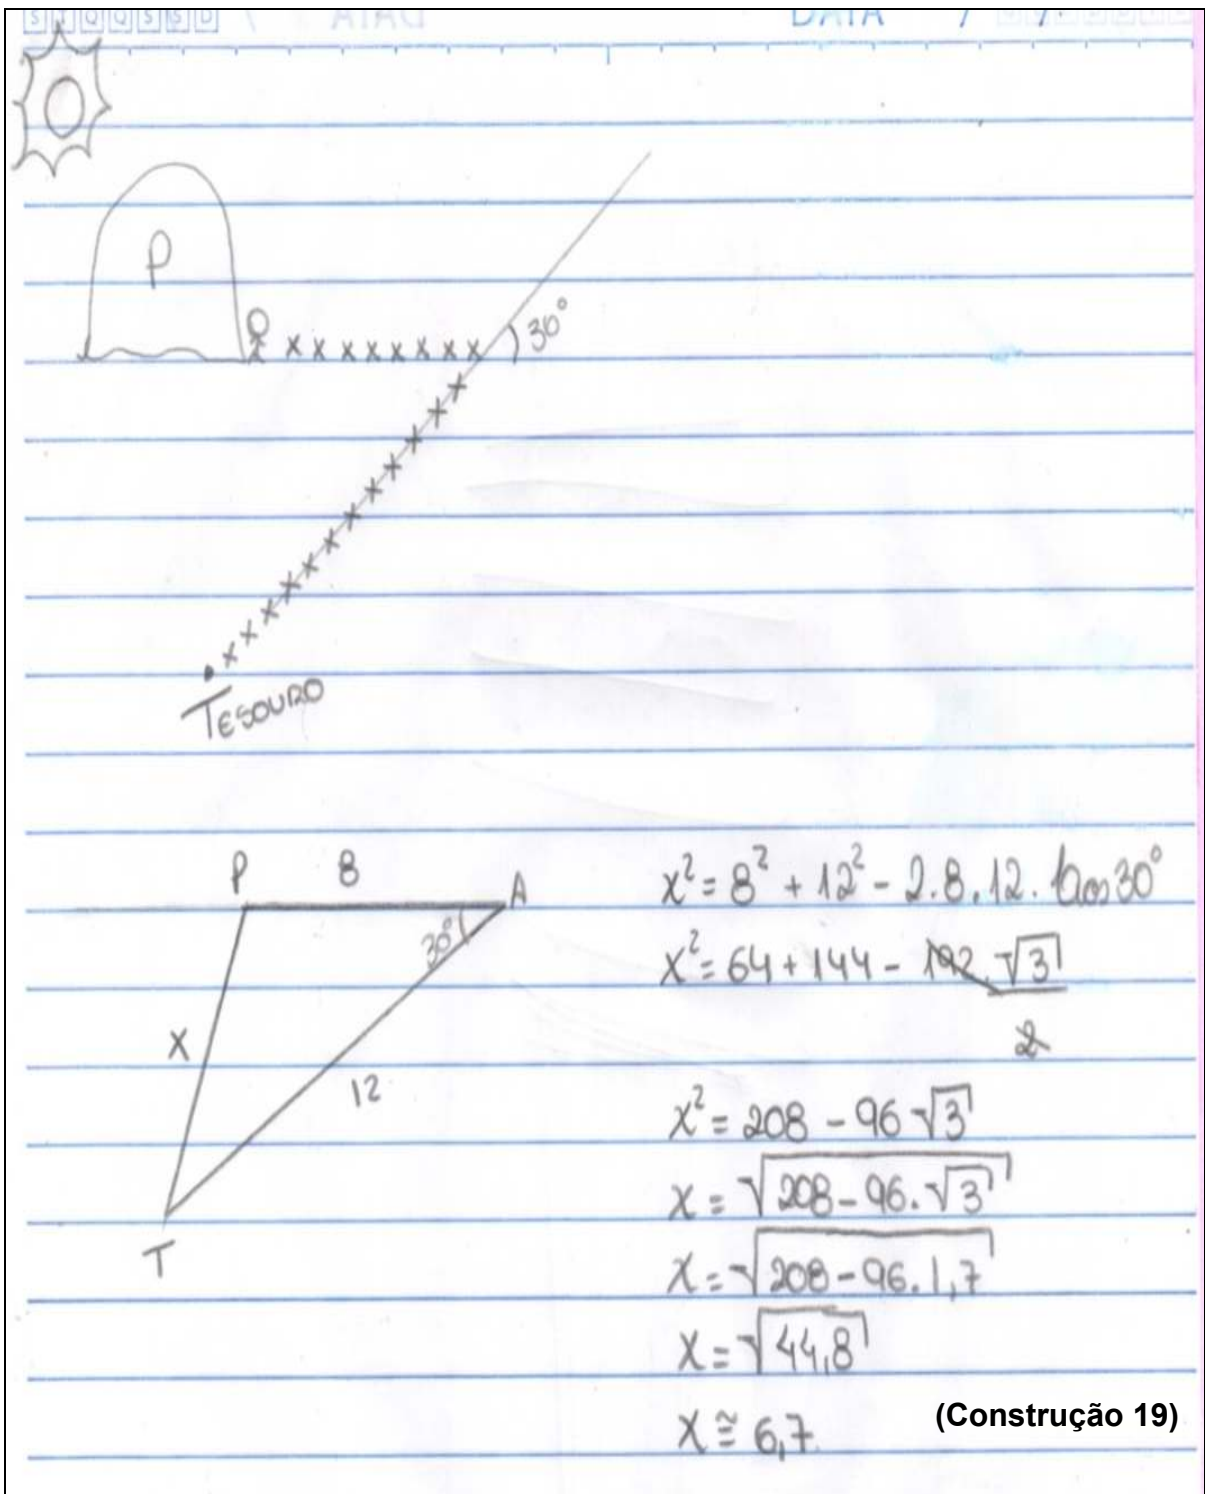 S T Q Q S S D
DATA
DATA / /
P
x x x x x x x x
30°
x x x x x x x x x x x x
TESOURO
P 8 A
30°
X
12
T
x² = 8² + 12² - 2.8.12. cos 30°
x² = 64 + 144 - 192. √3
2
x² = 208 - 96 √3
x = √208 - 96. √3
x = √208 - 96. 1,7
x = √44,8
x ≅ 6,7
(Construção 19)